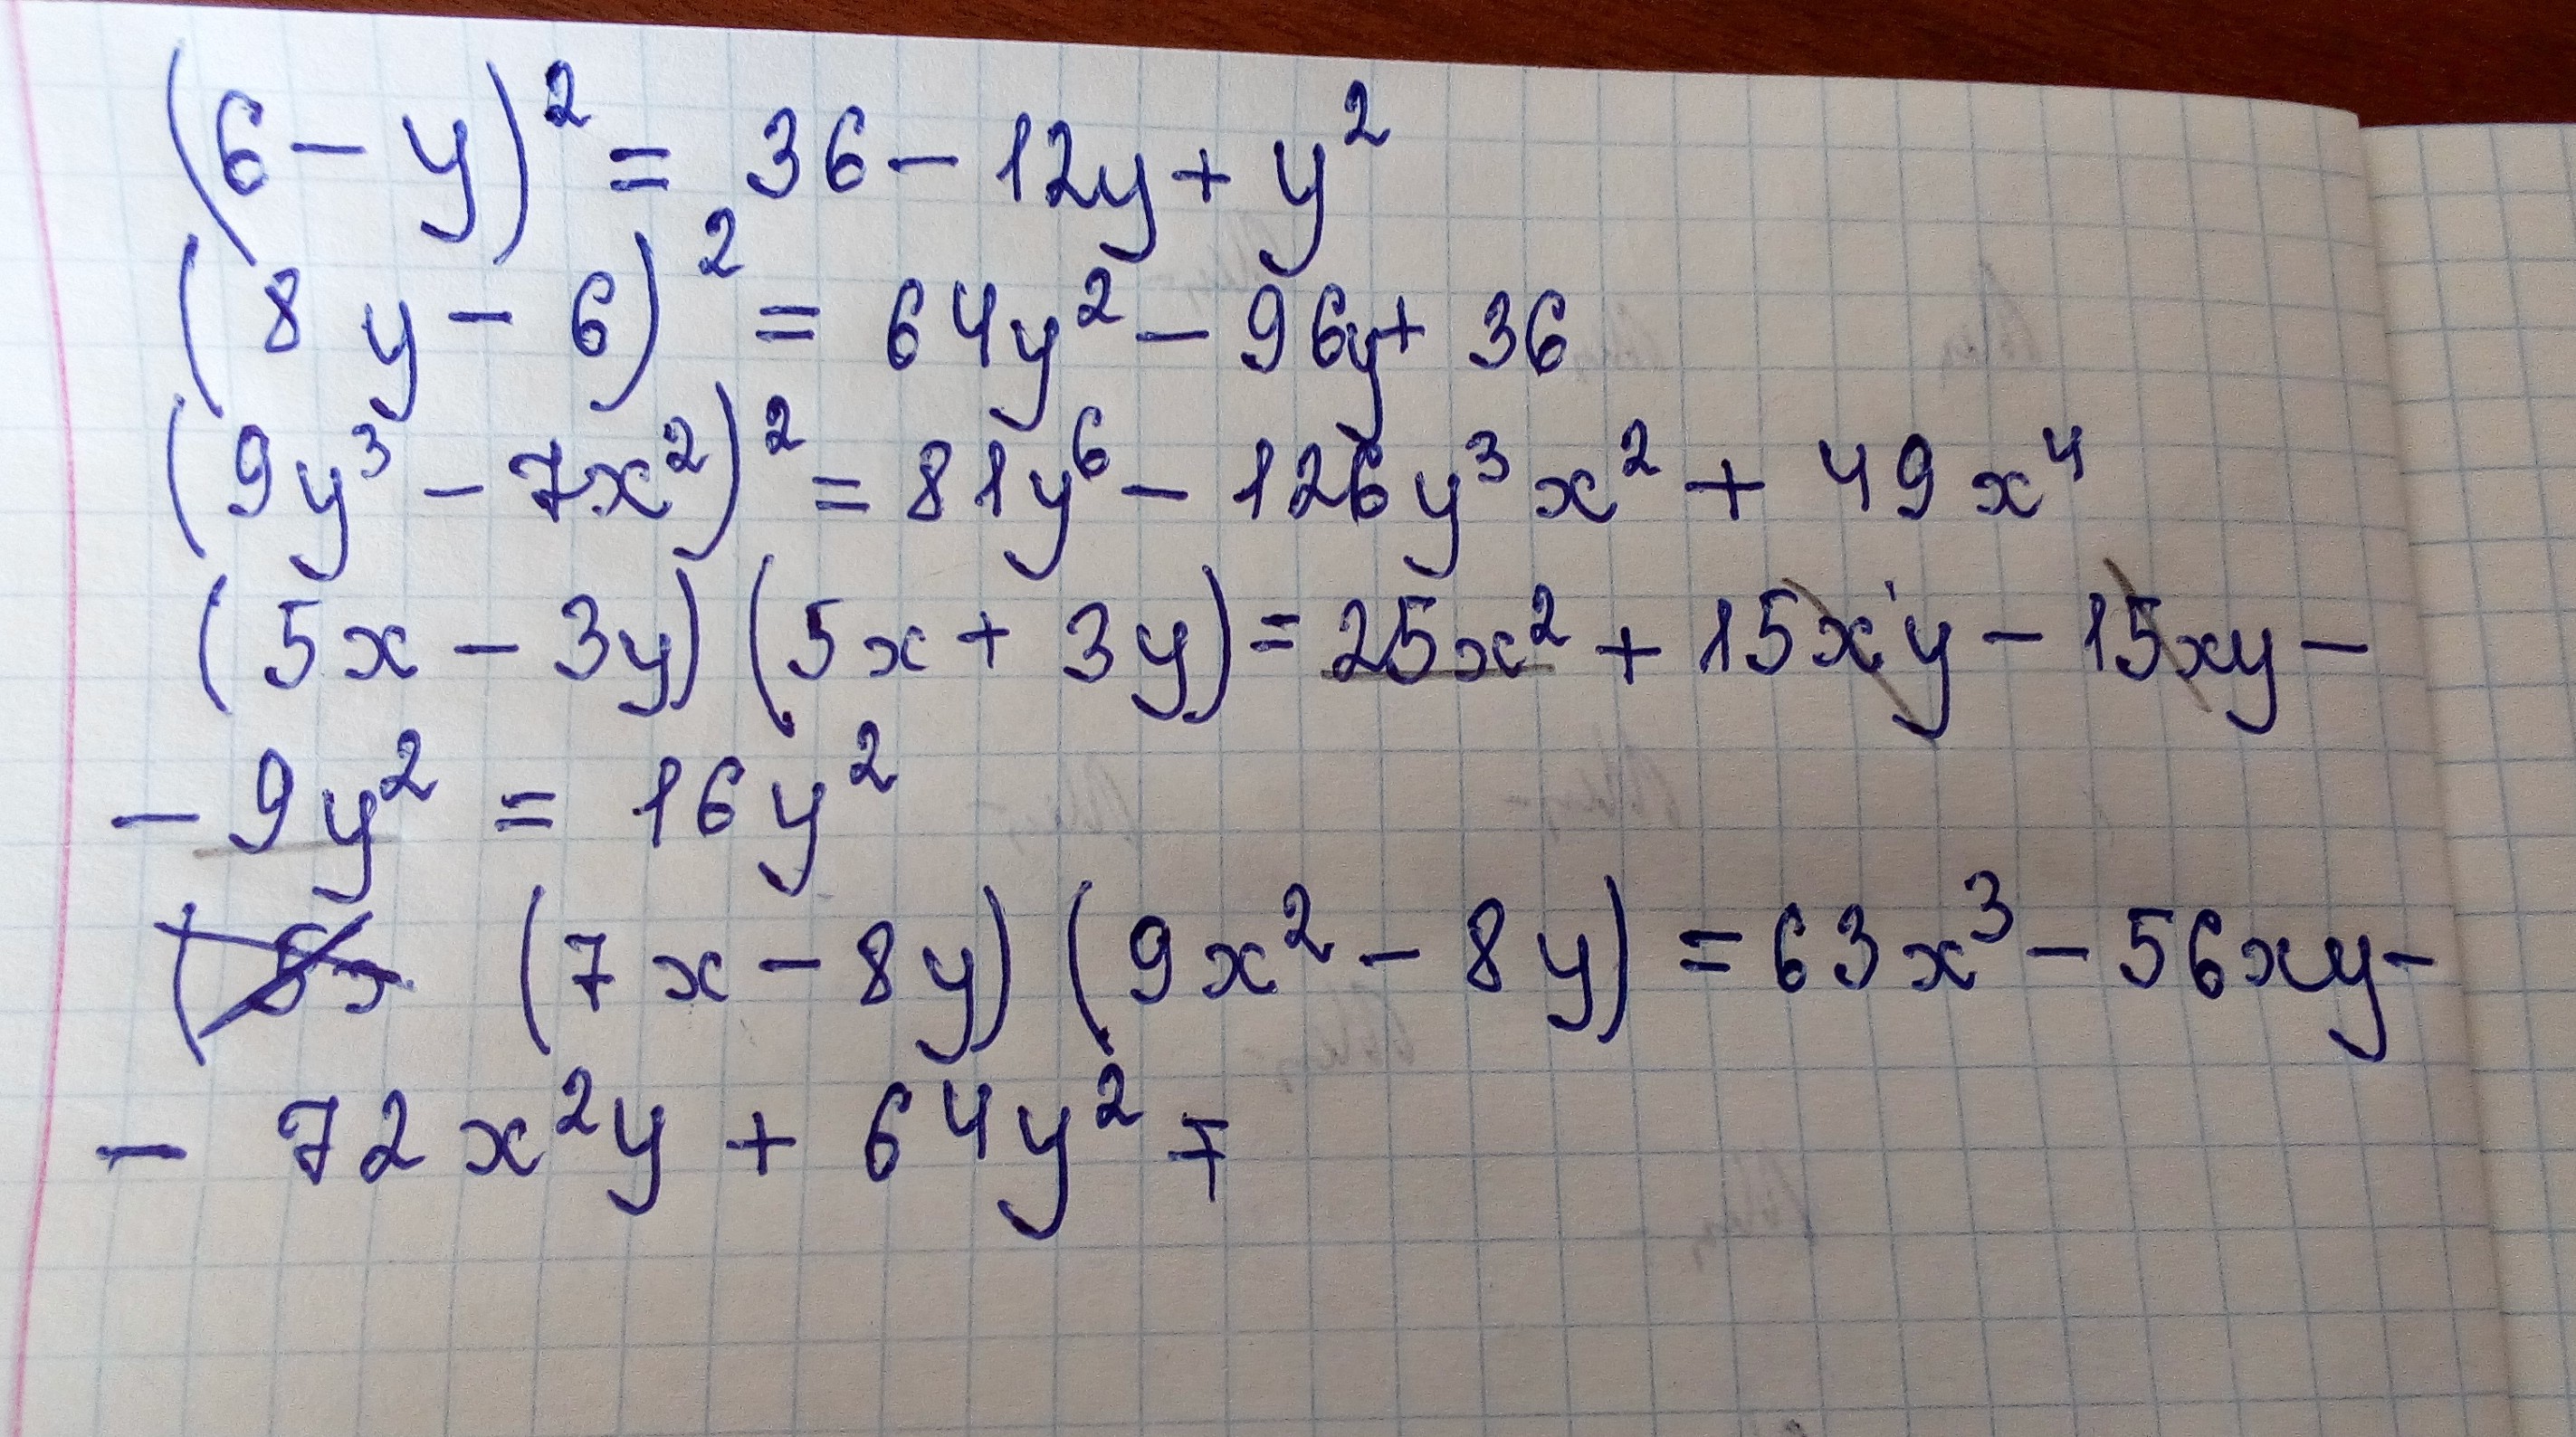 (6 - y)² = 36 - 12y + y²
(8y - 6)² = 64y² - 96y + 36
(9y³ - 7x²)² = 81y⁶ - 126y³x² + 49x⁴
(5x - 3y)(5x + 3y) = 25x² + 15xy - 15xy -
- 9y² = 16y²
(7x - 8y)(9x² - 8y) = 63x³ - 56xy -
- 72x²y + 64y² =